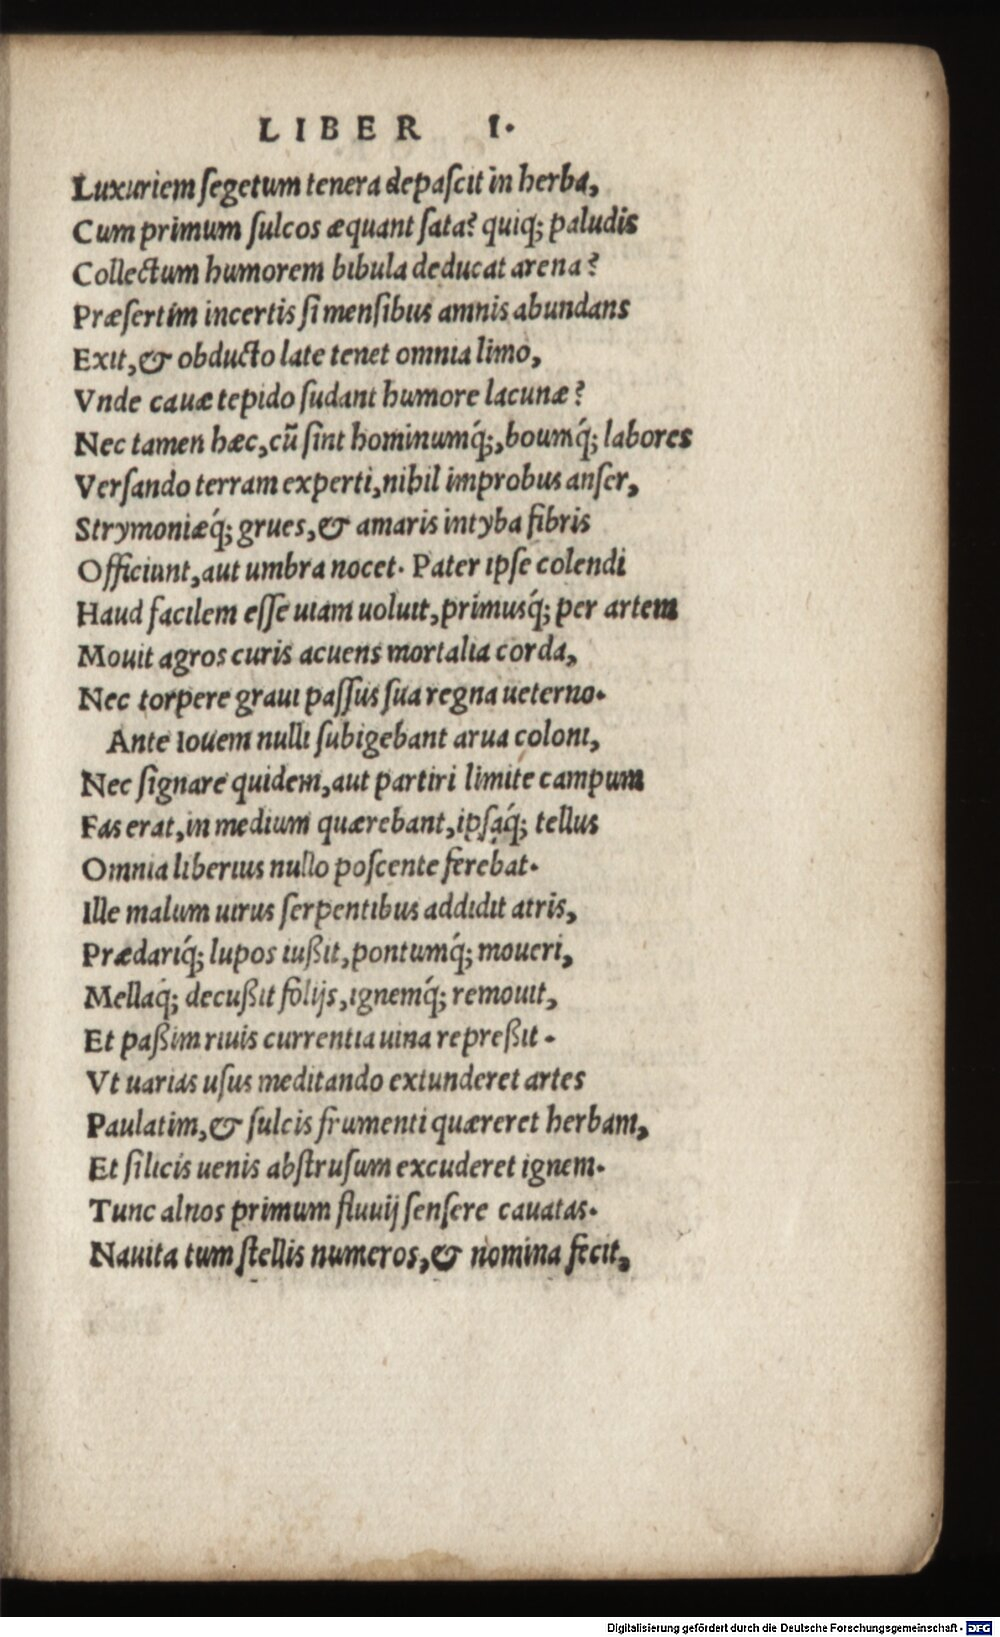 LIBER I.
Luxuriem ſegetum tenera depaſcit in herba,
Cum primum ſulcos æquant ſata? quiq; paludis
Collectum humorem bibula deducat arena?
Præſertim incertis ſi menſibus amnis abundans
Exit, & obducto late tenet omnia limo,
Vnde cauæ tepido ſudant humore lacunæ?
Nec tamen hæc, cū ſint hominumq́;, boumq́; labores
Verſando terram experti, nihil improbus anſer,
Strymoniæq́; grues, & amaris intyba fibris
Officiunt, aut umbra nocet. Pater ipſe colendi
Haud facilem eſſe uiam uoluit, primusq́; per artem
Mouit agros curis acuens mortalia corda,
Nec torpere graui paſſus ſua regna ueterno.
Ante Iouem nulli ſubigebant arua coloni,
Nec ſignare quidem, aut partiri limite campum
Fas erat, in medium quærebant, ipſaq́; tellus
Omnia liberius nullo poſcente ferebat.
Ille malum uirus ſerpentibus addidit atris,
Prædariq́; lupos iußit, pontumq́; moueri,
Mellaq́; decußit folijs, ignemq́; remouit,
Et paßim riuis currentia uina repreßit.
Vt uarias uſus meditando extunderet artes
Paulatim, & ſulcis frumenti quæreret herbam,
Et ſilicis uenis abſtruſum excuderet ignem.
Tunc alnos primum fluuij ſenſere cauatas.
Nauita tum ſtellis numeros, & nomina fecit,
Digitalisierung gefördert durch die Deutsche Forschungsgemeinschaft - DFG